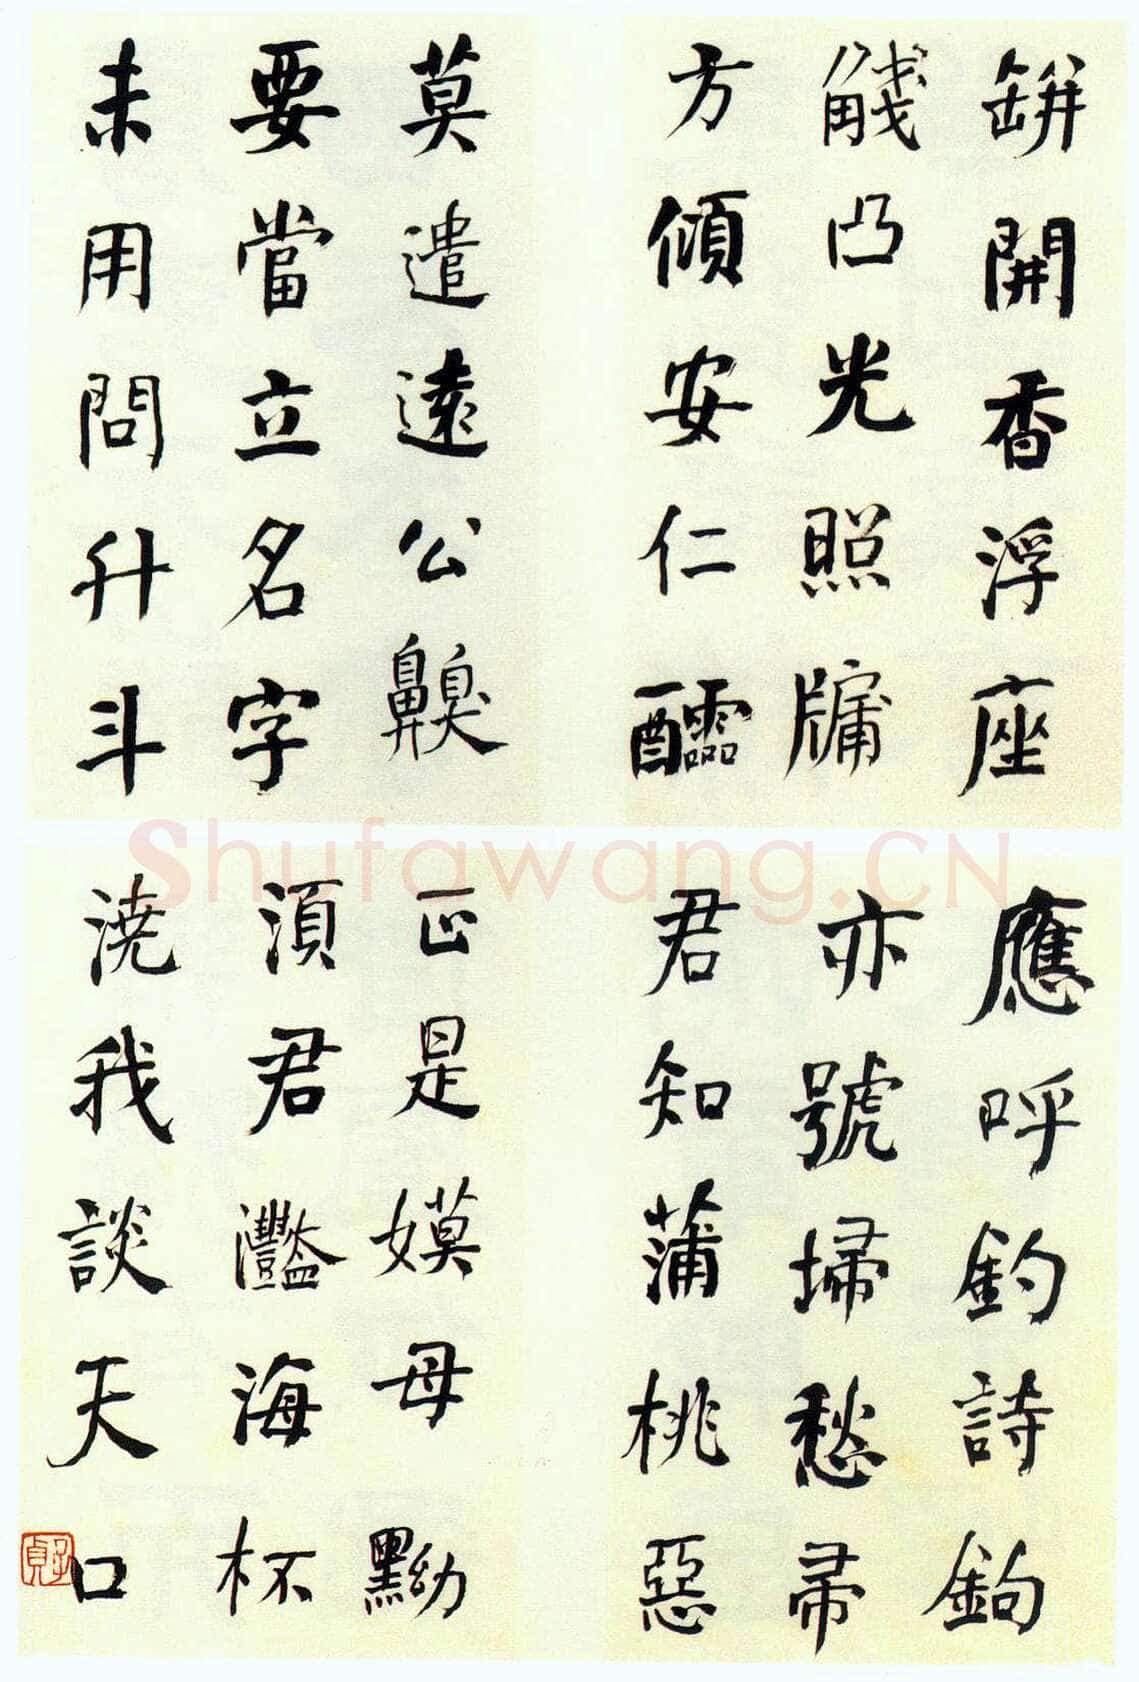 缾開香浮座
凸光照牖
方傾安仁醽
莫遣遠公齅
要當立名字
未用問升斗
應呼釣詩鉤
亦號掃愁帚
君知蒲桃惡
正是嫫母黝
湏君灩海杯
澆我談天口
子貞
Shufawang.CN